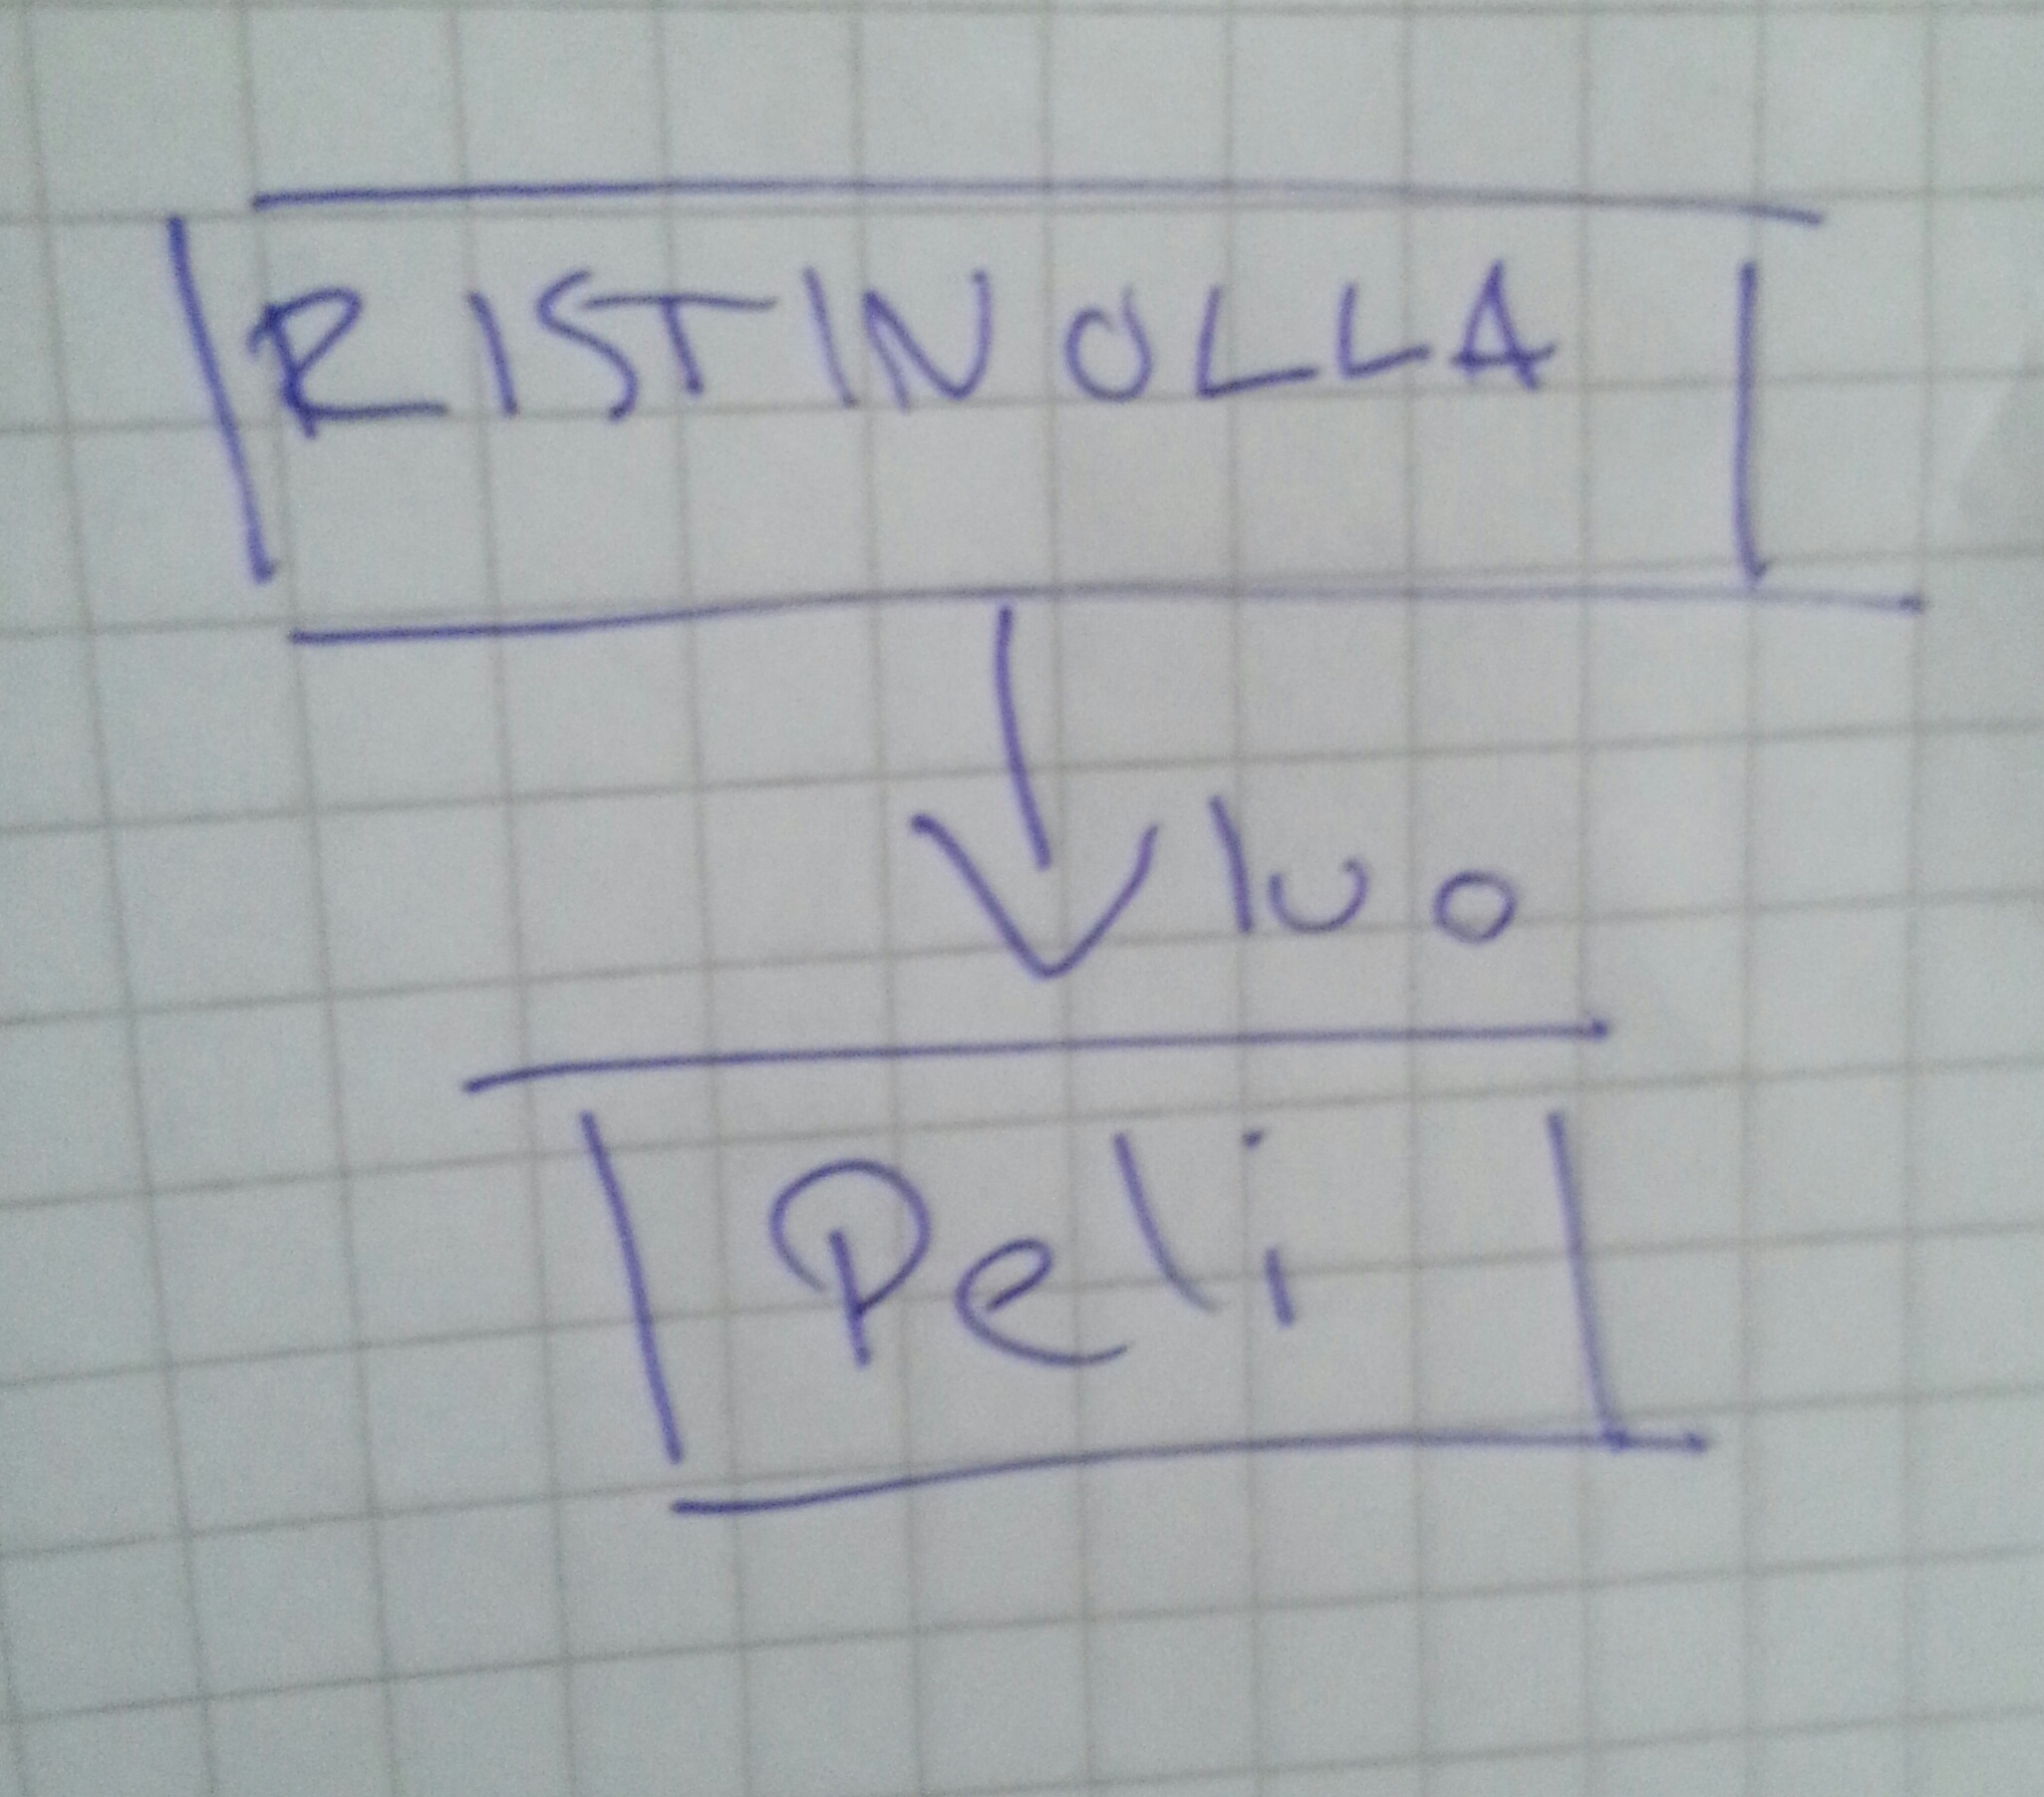 RISTINOLLA
luo
Peli